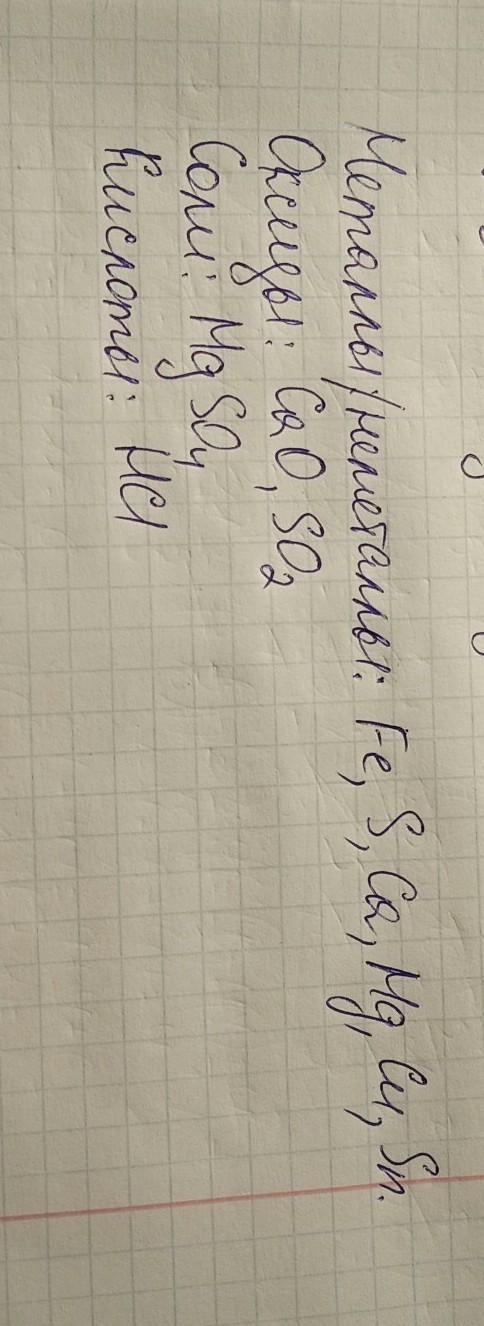 Металлы/неметаллы: Fe, S, Ca, Mg, Cu, Sn.
Оксиды: CaO, SO2
Соли: MgSO4
Кислоты: HCl